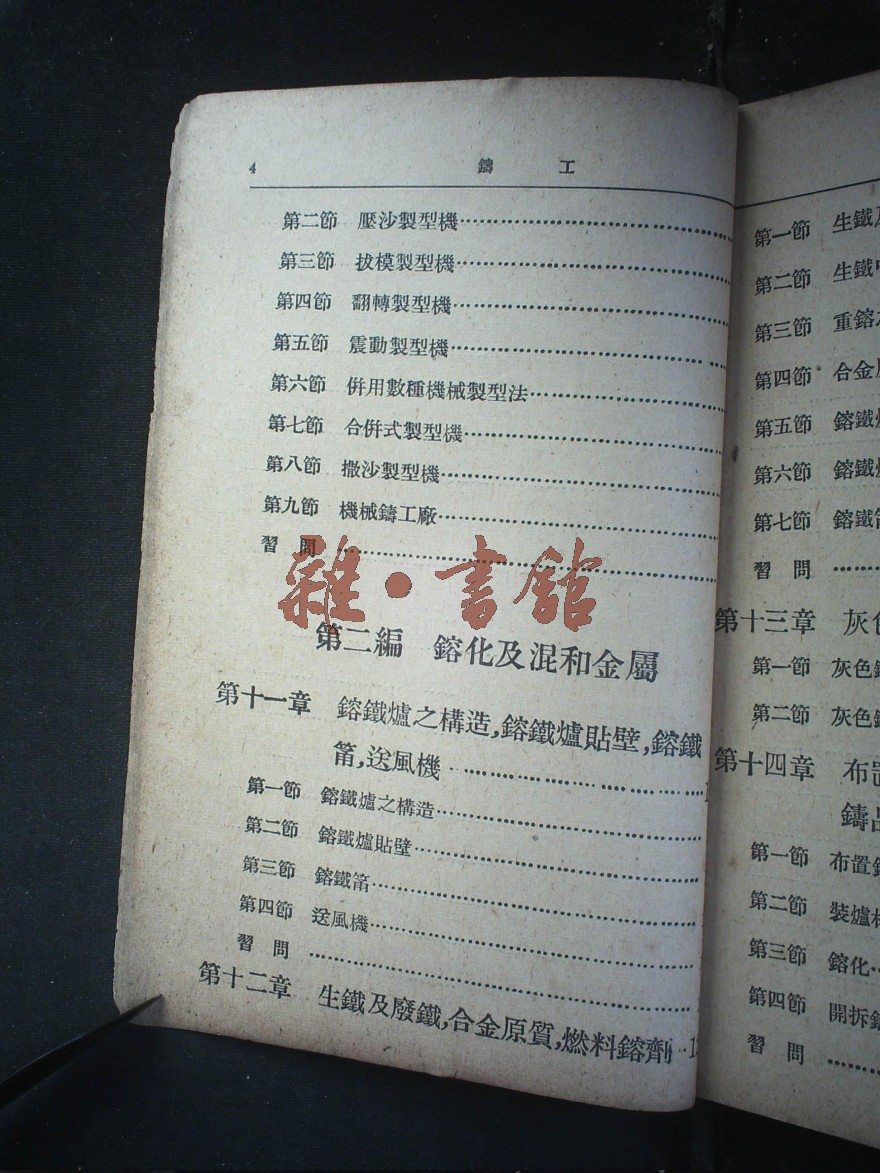 4 鑄工
第二節 壓沙製型機
第三節 拔模製型機
第四節 翻轉製型機
第五節 震動製型機
第六節 併用數種機械製型法
第七節 合併式製型機
第八節 撒沙製型機
第九節 機械鑄工廠
習問
雜·書館
第二編 鎔化及混和金屬
第十一章 鎔鐵爐之構造,鎔鐵爐貼壁,鎔鐵
筩,送風機
第一節 鎔鐵爐之構造
第二節 鎔鐵爐貼壁
第三節 鎔鐵筩
第四節 送風機
習問
第十二章 生鐵及廢鐵,合金原質,燃料鎔劑
第一節 生鐵
第二節 生鐵
第三節 重鎔
第四節 合金
第五節 鎔鐵
第六節 鎔鐵
第七節 鎔鐵
習問
第十三章 灰色
第一節 灰色
第二節 灰色
第十四章 布置
鑄品
第一節 布置
第二節 裝爐
第三節 鎔化
第四節 開拆
習問